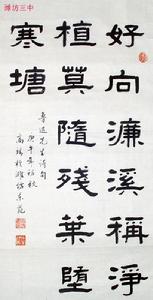 潍坊三中
好向濂溪稱淨
植莫隨殘葉墮
寒塘
魯迅先生詩句
庚午年初秋